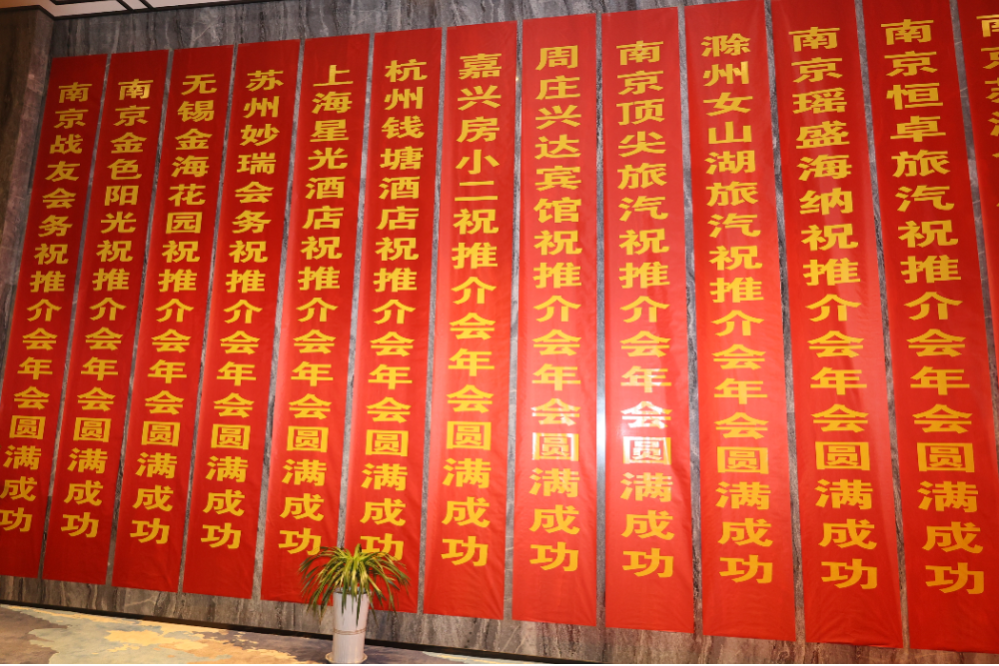 南京战友会务祝推介会年会圆满成功
南京金色阳光祝推介会年会圆满成功
无锡金海花园祝推介会年会圆满成功
苏州妙瑞会务祝推介会年会圆满成功
上海星光酒店祝推介会年会圆满成功
杭州钱塘酒店祝推介会年会圆满成功
嘉兴房小二祝推介会年会圆满成功
周庄兴达宾馆祝推介会年会圆满成功
南京顶尖旅汽祝推介会年会圆满成功
滁州女山湖旅汽祝推介会年会圆满成功
南京瑶盛海纳祝推介会年会圆满成功
南京恒卓旅汽祝推介会年会圆满成功